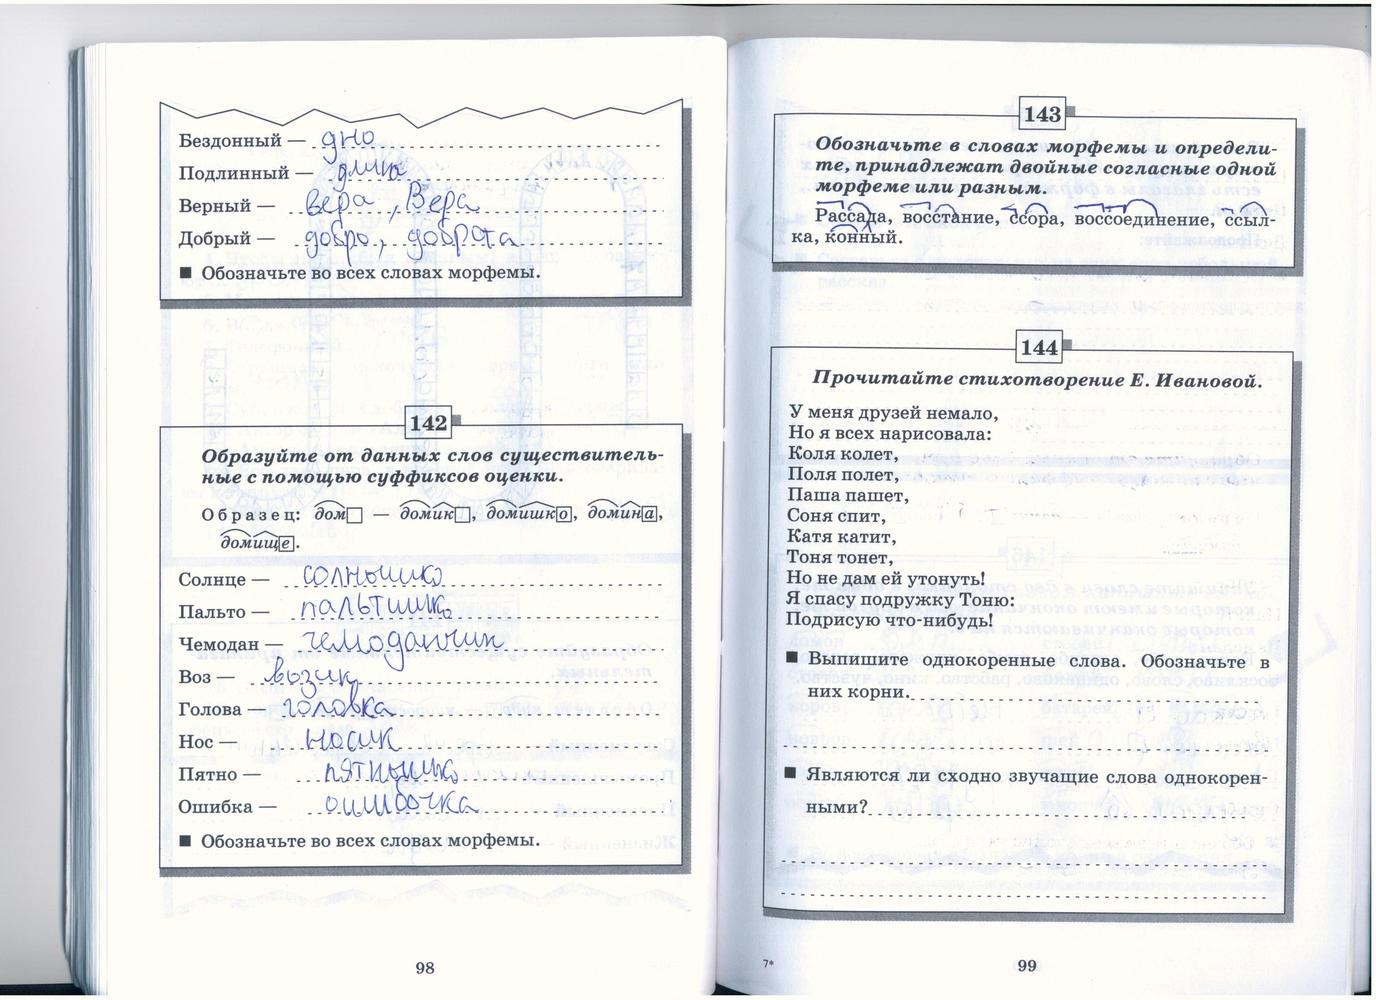 Бездонный — дно
Подлинный — длина
Верный — вера, Вера
Добрый — добро, доброта
■ Обозначьте во всех словах морфемы.
142
Образуйте от данных слов существитель-
ные с помощью суффиксов оценки.
Образец: дом — домик, домишко, домина,
домище.
Солнце — солнышко
Пальто — пальтишко
Чемодан — чемоданчик
Воз — возик
Голова — головка
Нос — носик
Пятно — пятнышко
Ошибка — ошибочка
■ Обозначьте во всех словах морфемы.
98
143
Обозначьте в словах морфемы и определи-
те, принадлежат двойные согласные одной
морфеме или разным.
Рассада, восстание, ссора, воссоединение, ссыл-
ка, конный.
144
Прочитайте стихотворение Е. Ивановой.
У меня друзей немало,
Но я всех нарисовала:
Коля колет,
Поля полет,
Паша пашет,
Соня спит,
Катя катит,
Тоня тонет,
Но не дам ей утонуть!
Я спасу подружку Тоню:
Подрисую что-нибудь!
■ Выпишите однокоренные слова. Обозначьте в
них корни.
■ Являются ли сходно звучащие слова однокорен-
ными?
7*
99